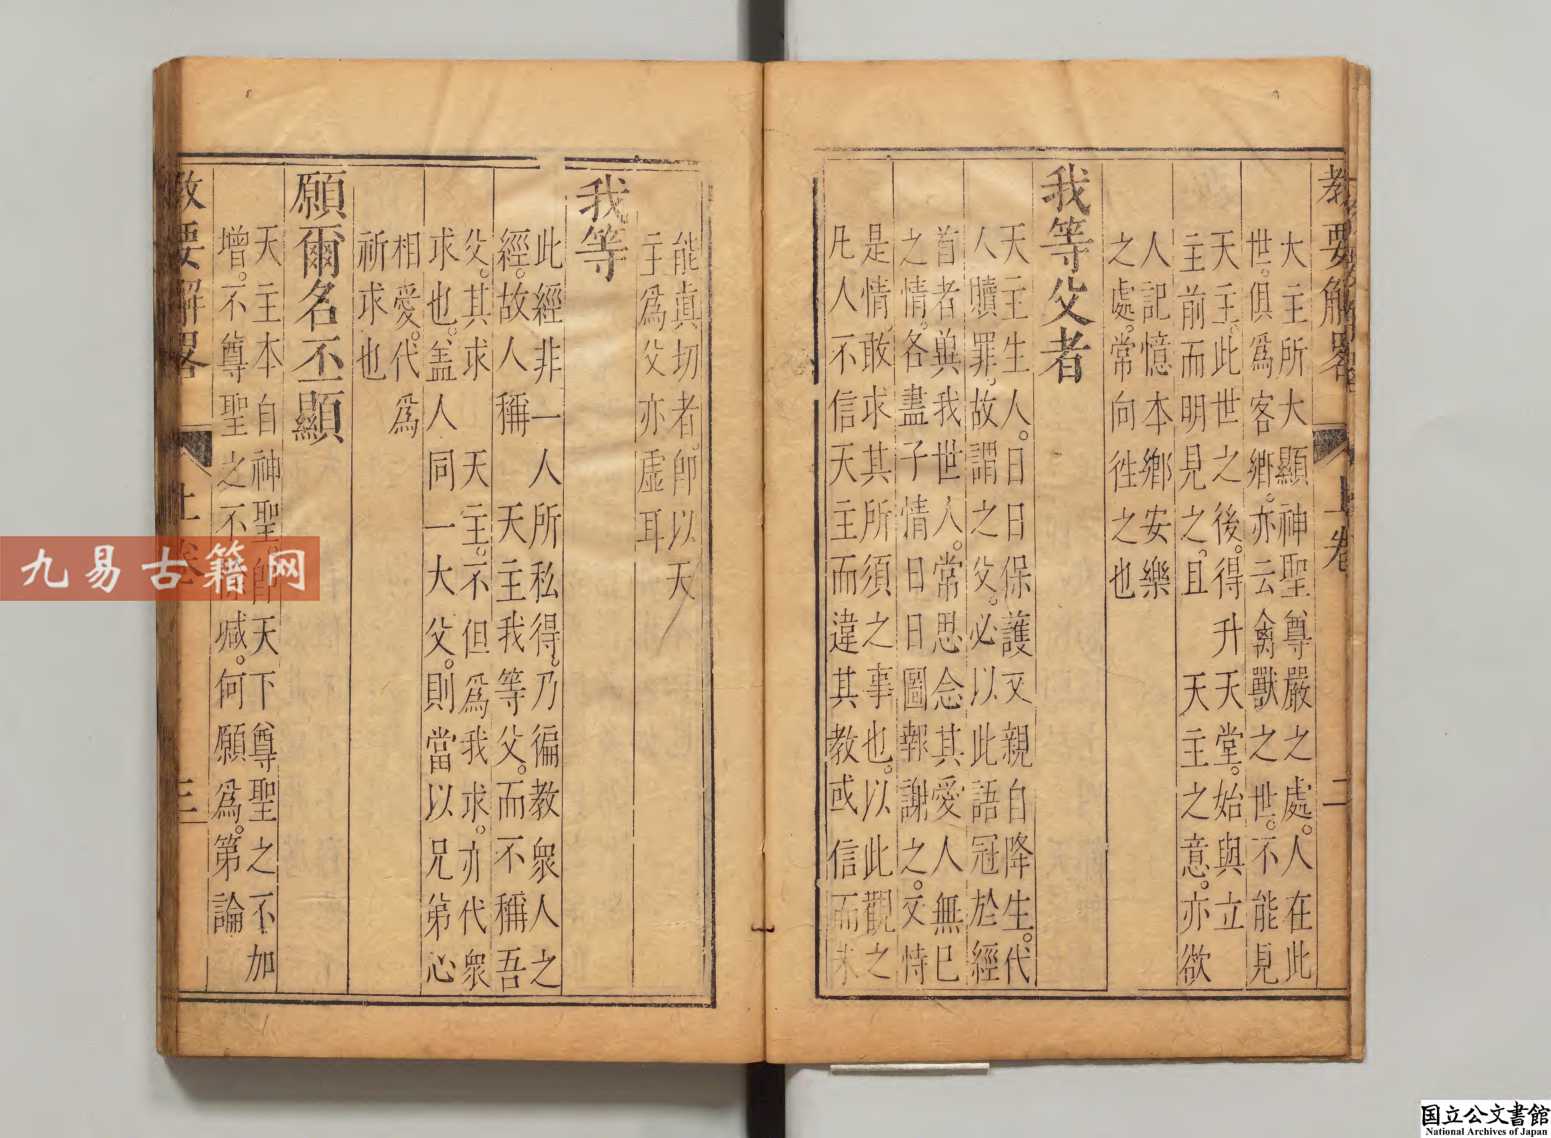 教要解畧 上卷 二
大主所大顯神聖尊嚴之處。人在此
世。俱爲客鄉。亦云禽獸之世。不能見
天主。此世之後。得升天堂。始與立
主前而明見之。且 天主之意。亦欲
人記憶本鄉安樂
之處。常向徃之也
我等父者
天主生人。日日保護又親自降生。代
人贖罪。故謂之父。必以此語冠於經
首者。兾我世人。常思念其愛人無已
之情。各盡子情日日圖報謝之。又恃
是情。敢求其所須之事也。以此觀之
凡人不信天主而違其教或信而未
能真切者。卽以天
主爲父亦虛耳
我等
此經非一人所私得。乃徧教衆人之
經。故人稱 天主我等父。而不稱吾
父。其求 天主。不但爲我求。亦代衆
求也。盖人同一大父。則當以兄弟心
相愛。代爲
祈求也
願爾名丕顯
天主本自神聖。卽天下尊聖之不加
增。不尊聖之不喊。何願爲。第論
教要解畧 上卷 三
九易古籍网
国立公文書館
National Archives of Japan